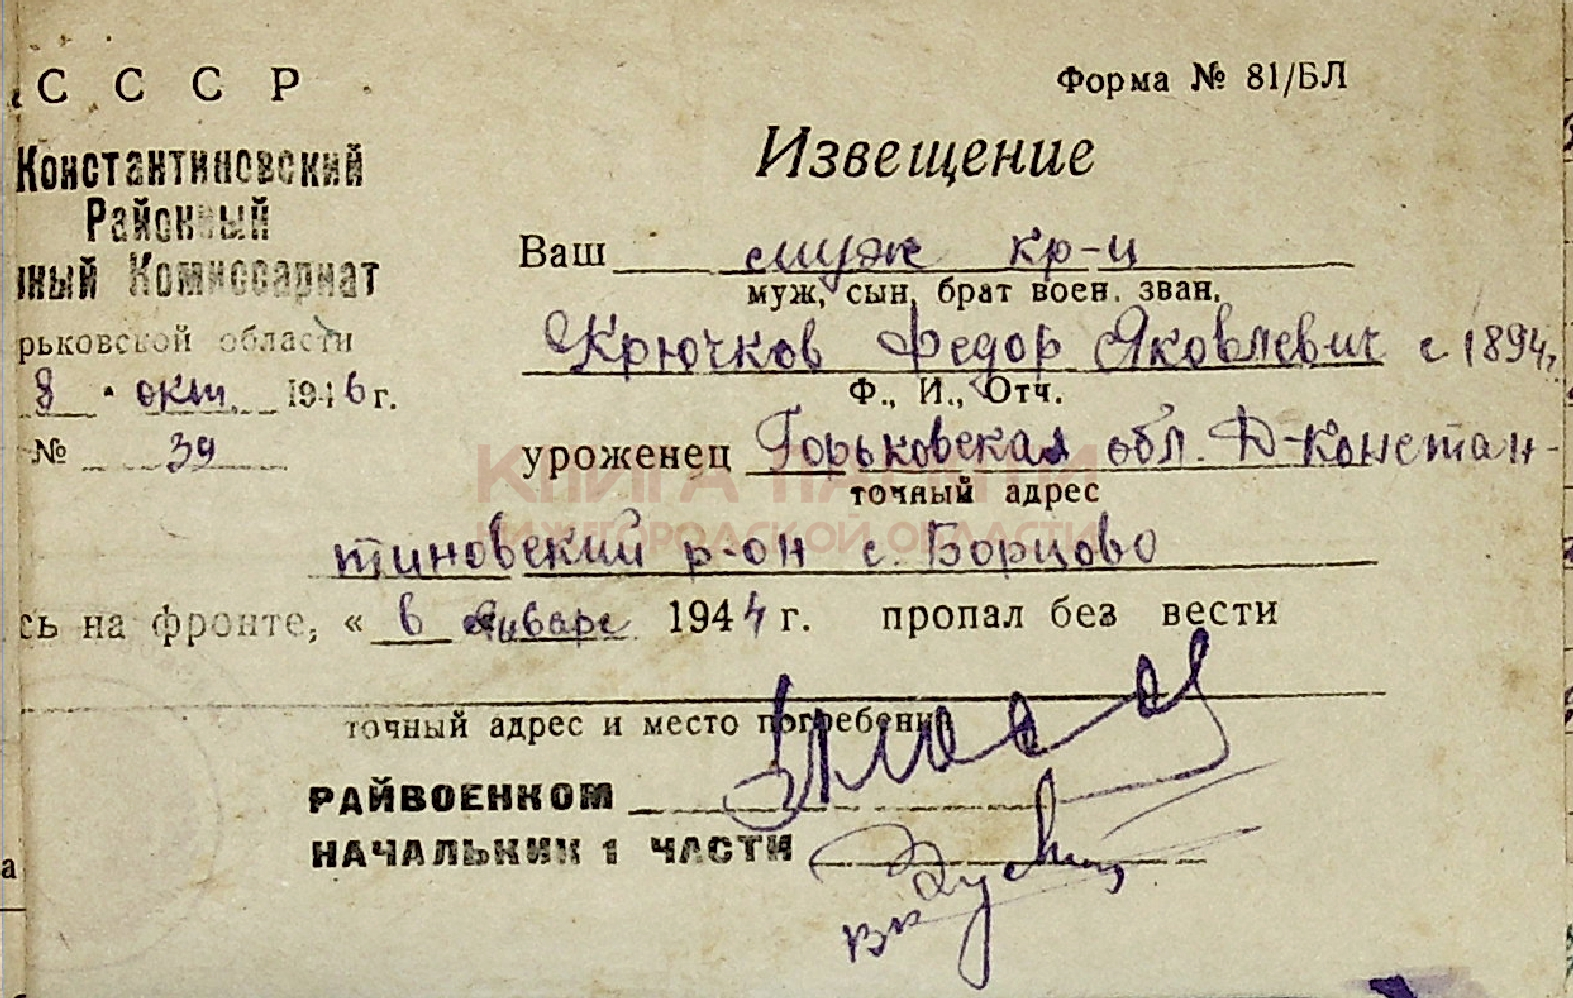 С С С Р
Форма № 81/БЛ
Константиновский
Районный
нный Комиссариат
рьковской области
8 · окт. 1946 г.
№ 39
Извещение
Ваш муж кр-ц
муж, сын, брат воен. зван.
Крючков Федор Яковлевич с 1894г
Ф., И., Отч.
уроженец Горьковская обл. Д-Констан-
точный адрес
КНИГА ПАМЯТИ
НИЖЕГОРОДСКОЙ ОБЛАСТИ
тиновский р-он с. Борцово
сь на фронте, « в январе 1944 г. пропал без вести
точный адрес и место погребения
РАЙВОЕНКОМ
НАЧАЛЬНИК 1 ЧАСТИ
а